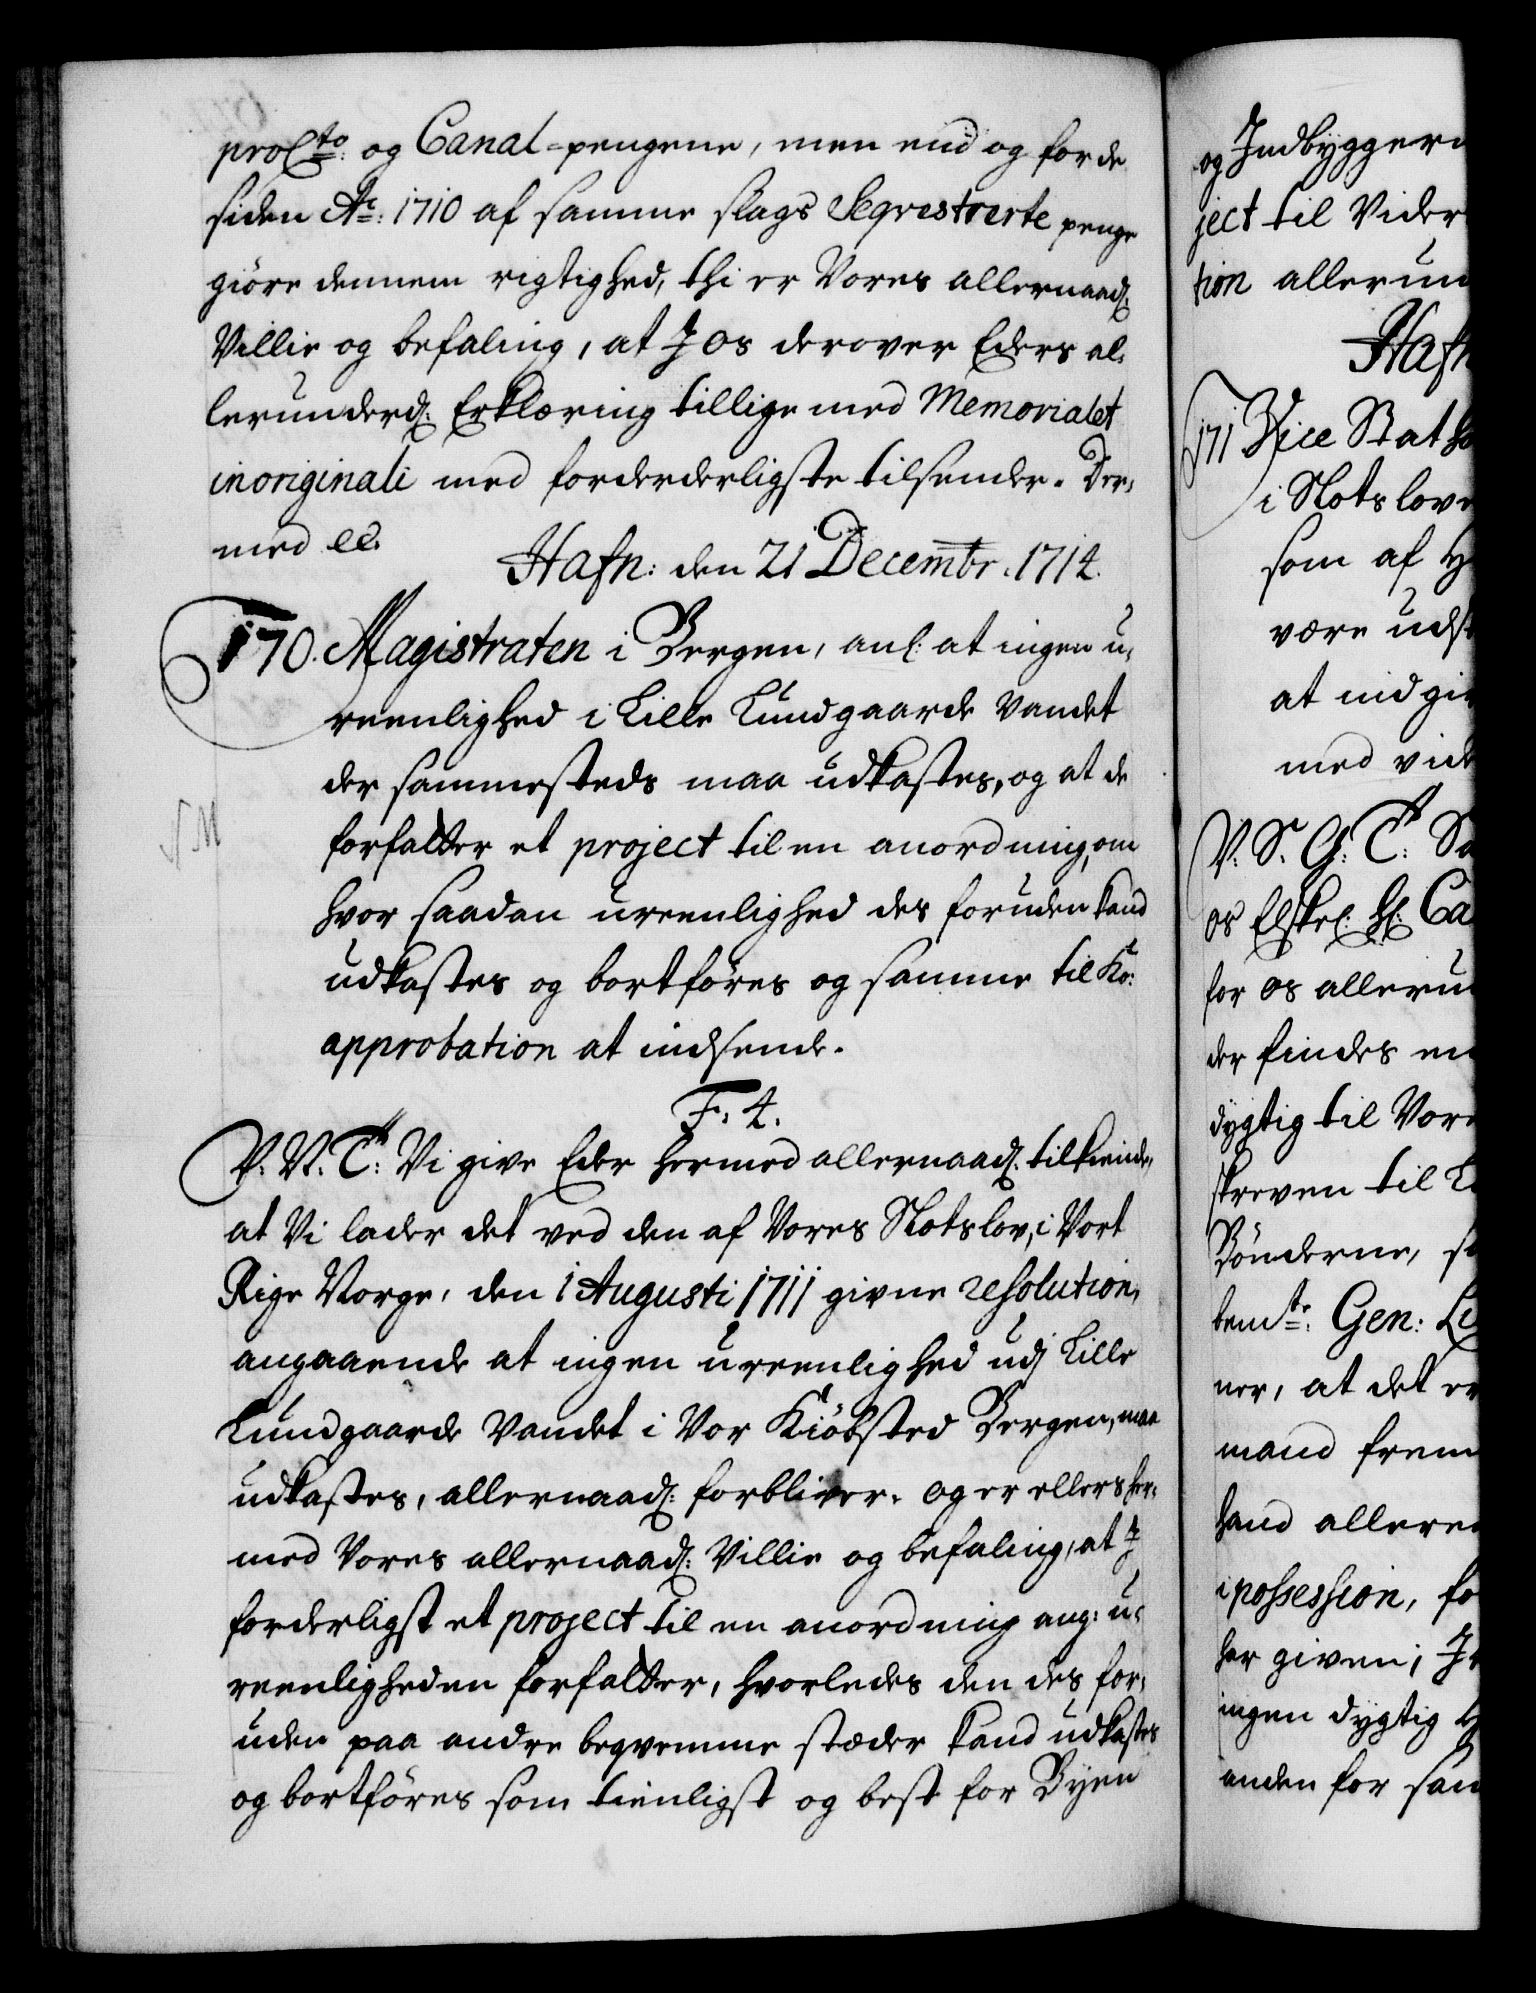 proCto: og Canal-pengene, men end og for de
siden Ao: 1710 af samme slags Seqvestrerte penge
giöre dennem rigtighed, thi er Vores allernaadʃ:
Villie og befaling, at I os derover Eders al-
lerunderdʃ: Erklæring tillige med Memorialet
in originali med forderderligste tilsender. Der-
med etc.
Hafn: den 21 Decembr. 1714.
170. Magistraten i Bergen, anl: at ingen u-
reenlighed i Lille Lundgaards Vandet
der sammesteds maa udkastes, og at de
forfatter et project til en anordning, om
hvor saadan ureenlighed des foruden kand
udkastes og bortföres og samme til Ko:
approbation at indsende.
F. 4.
V. N. Ct: Vi give Eder hermed allernaadʃ: tilkiende,
at Vi lader det ved den af Vores Slotslov, i Vort
Rige Norge, den 1 Augusti 1711 givne resolution,
angaaende at ingen ureenlighed udj Lille
Lundgaards Vandet i Vor Kiöbsted Bergen, maa
udkastes, allernaadʃ: forbliver. og er ellers her-
med Vores allernaadʃ: Villie og befaling, at I
forderligst et project til en anordning ang: u-
reenligheden forfatter, hvorledes den des for-
uden paa andre beqvemme stæder kand udkastes
og bortföres som tienligst og best for Byen
og Indbyggern
ject til Vider
tion allerun
Hafn
171 Vice Statho
i Slotslove
som af H
være udst
at indgiv
med vide
V. S. G: Ct: Sa
os Elskel: H: Ca
for os allerun
der findes en
dygtig til Vor
skreven til L
Bönderne, s
bemte: Gen: Li
ner, at det er
mand frem
hand allere
i possession, fo
her given; I
ingen dygtig H
anden for saa